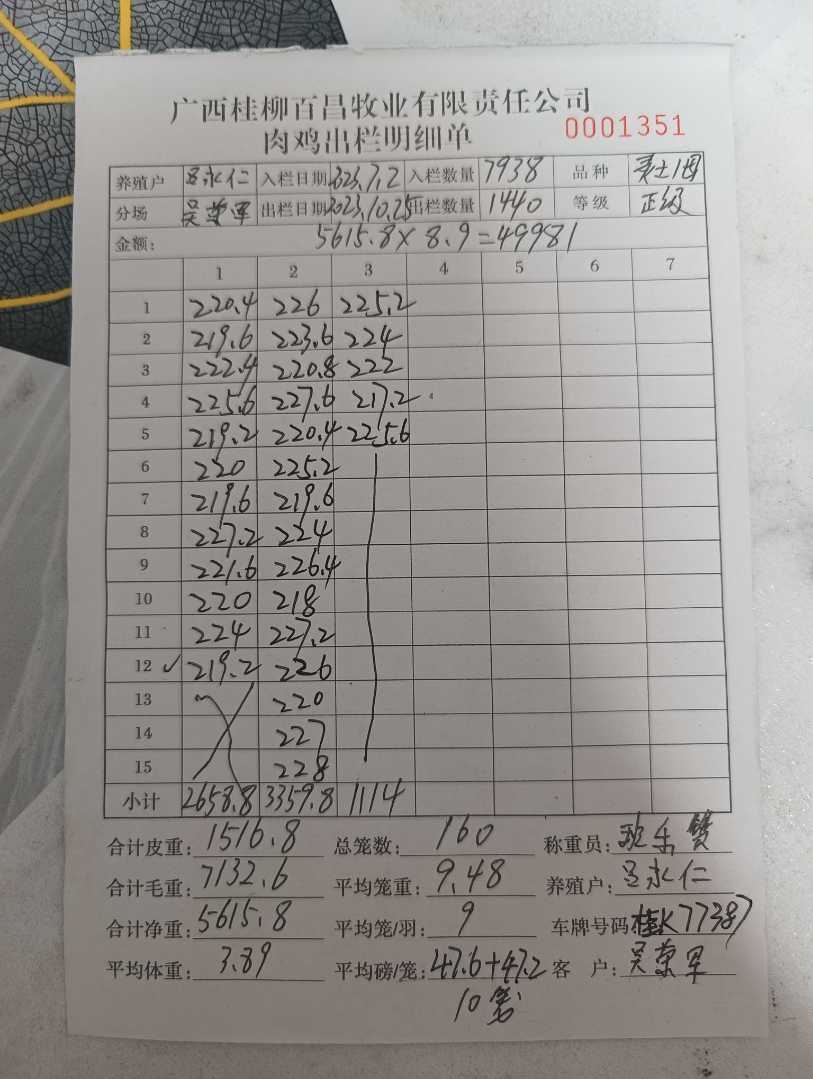 广西桂柳百昌牧业有限责任公司
肉鸡出栏明细单 0001351
养殖户 吕永仁 入栏日期 2023.7.2 入栏数量 7938 品种
分场 吴荣军 出栏日期 2023.10.25 出栏数量 1440 等级 正级
金额: 5615.8×8.9=49981
1 2 3 4 5 6 7
1 220.4 226 225.2
2 219.6 223.6 224
3 222.4 220.8 222
4 225.6 227.6 217.2
5 219.2 220.4 225.6
6 220 225.2
7 219.6 219.6
8 227.2 224
9 221.6 226.4
10 220 218
11 224 227.2
12 ✓ 219.2 226
13 220
14 227
15 228
小计 2658.8 3359.8 1114
合计皮重: 1516.8 总笼数: 160 称重员:
合计毛重: 7132.6 平均笼重: 9.48 养殖户: 吕永仁
合计净重: 5615.8 平均笼/羽: 9 车牌号码 桂K77387
平均体重: 3.89 平均磅/笼: 47.6+47.2 客 户: 吴荣军
10笼